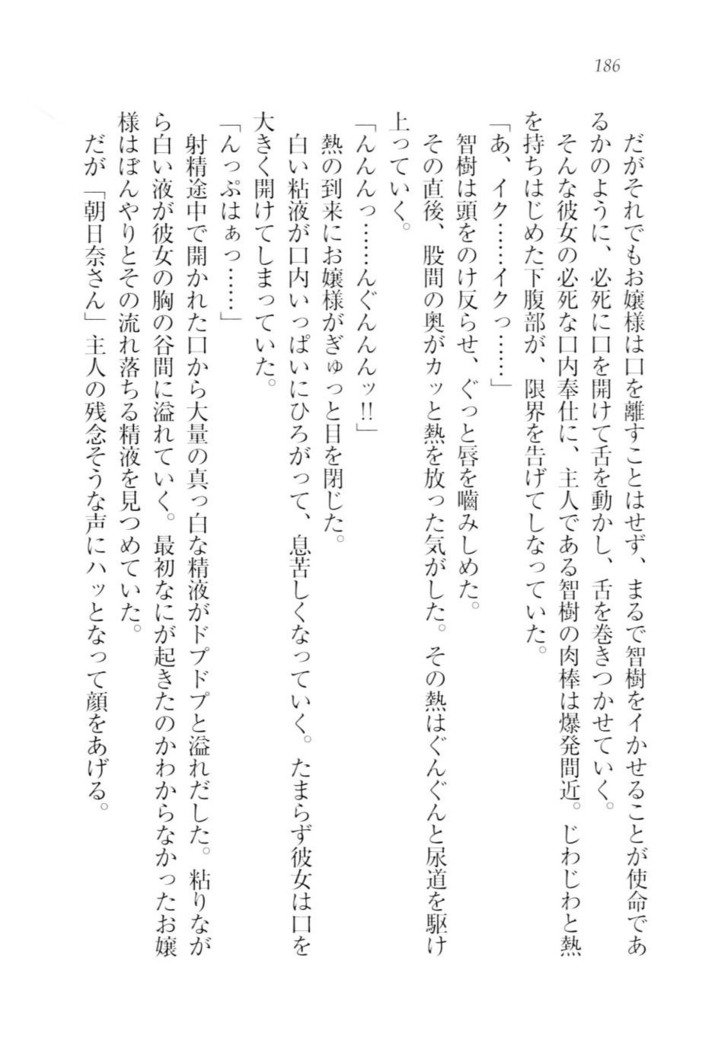 186
だがそれでもお嬢様は口を離すことはせず、まるで智樹をイかせることが使命であ
るかのように、必死に口を開けて舌を動かし、舌を巻きつかせていく。
そんな彼女の必死な口内奉仕に、主人である智樹の肉棒は爆発間近。じわじわと熱
を持ちはじめた下腹部が、限界を告げてしなっていた。
「あ、イク……イクっ……」
智樹は頭をのけ反らせ、ぐっと唇を嚙みしめた。
その直後、股間の奥がカッと熱を放った気がした。その熱はぐんぐんと尿道を駆け
上っていく。
「んんんっ……んぐんんんッ!!」
熱の到来にお嬢様がぎゅっと目を閉じた。
白い粘液が口内いっぱいにひろがって、息苦しくなっていく。たまらず彼女は口を
大きく開けてしまっていた。
「んっぷはぁっ……」
射精途中で開かれた口から大量の真っ白な精液がドプドプと溢れだした。粘りなが
ら白い液が彼女の胸の谷間に溢れていく。最初なにが起きたのかわからなかったお嬢
様はぼんやりとその流れ落ちる精液を見つめていた。
だが「朝日奈さん」主人の残念そうな声にハッとなって顔をあげる。